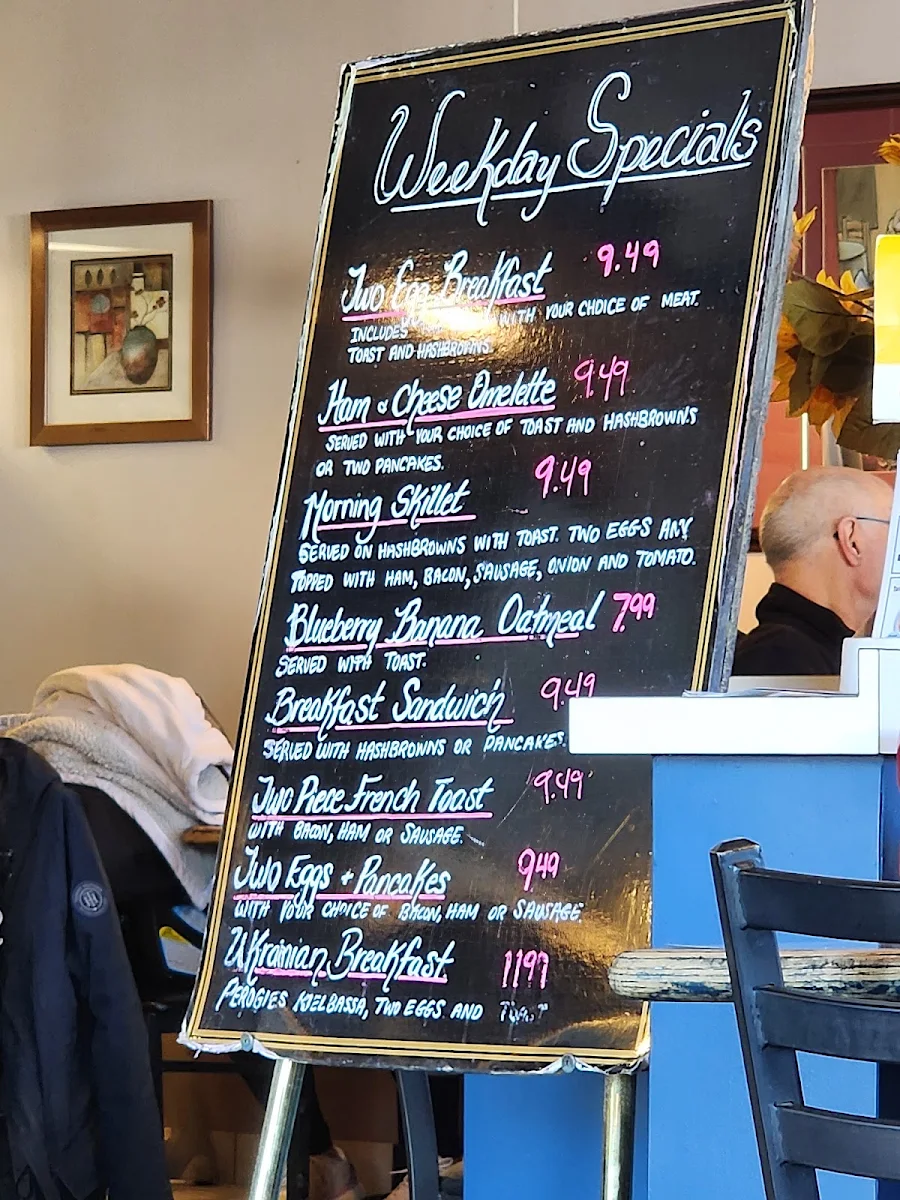 Weekday Specials
Two Egg Breakfast 9.49
INCLUDES WITH YOUR CHOICE OF MEAT.
TOAST AND HASHBROWNS
Ham & Cheese Omelette 9.49
SERVED WITH YOUR CHOICE OF TOAST AND HASHBROWNS
OR TWO PANCAKES.
Morning Skillet 9.49
SERVED ON HASHBROWNS WITH TOAST. TWO EGGS ANY
TOPPED WITH HAM, BACON, SAUSAGE, ONION AND TOMATO.
Blueberry Banana Oatmeal 7.99
SERVED WITH TOAST.
Breakfast Sandwich 9.49
SERVED WITH HASHBROWNS OR PANCAKES.
Two Piece French Toast 9.49
WITH BACON, HAM OR SAUSAGE.
Two Eggs + Pancakes 9.49
WITH YOUR CHOICE OF BACON, HAM OR SAUSAGE
Ukrainian Breakfast 11.99
PEROGIES KIELBASSA, TWO EGGS AND TOAST